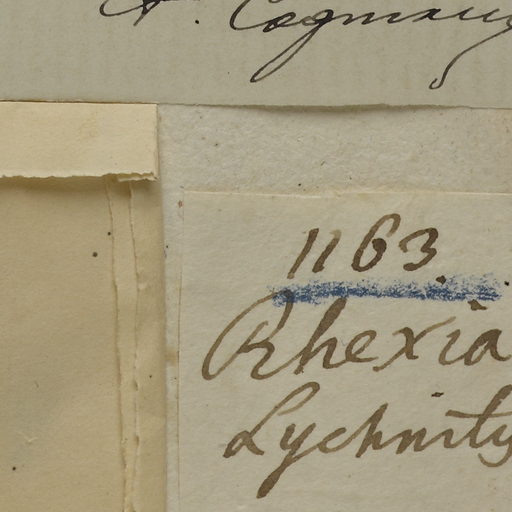 A. Cogniaux
1163.
Rhexia
Lychnitis